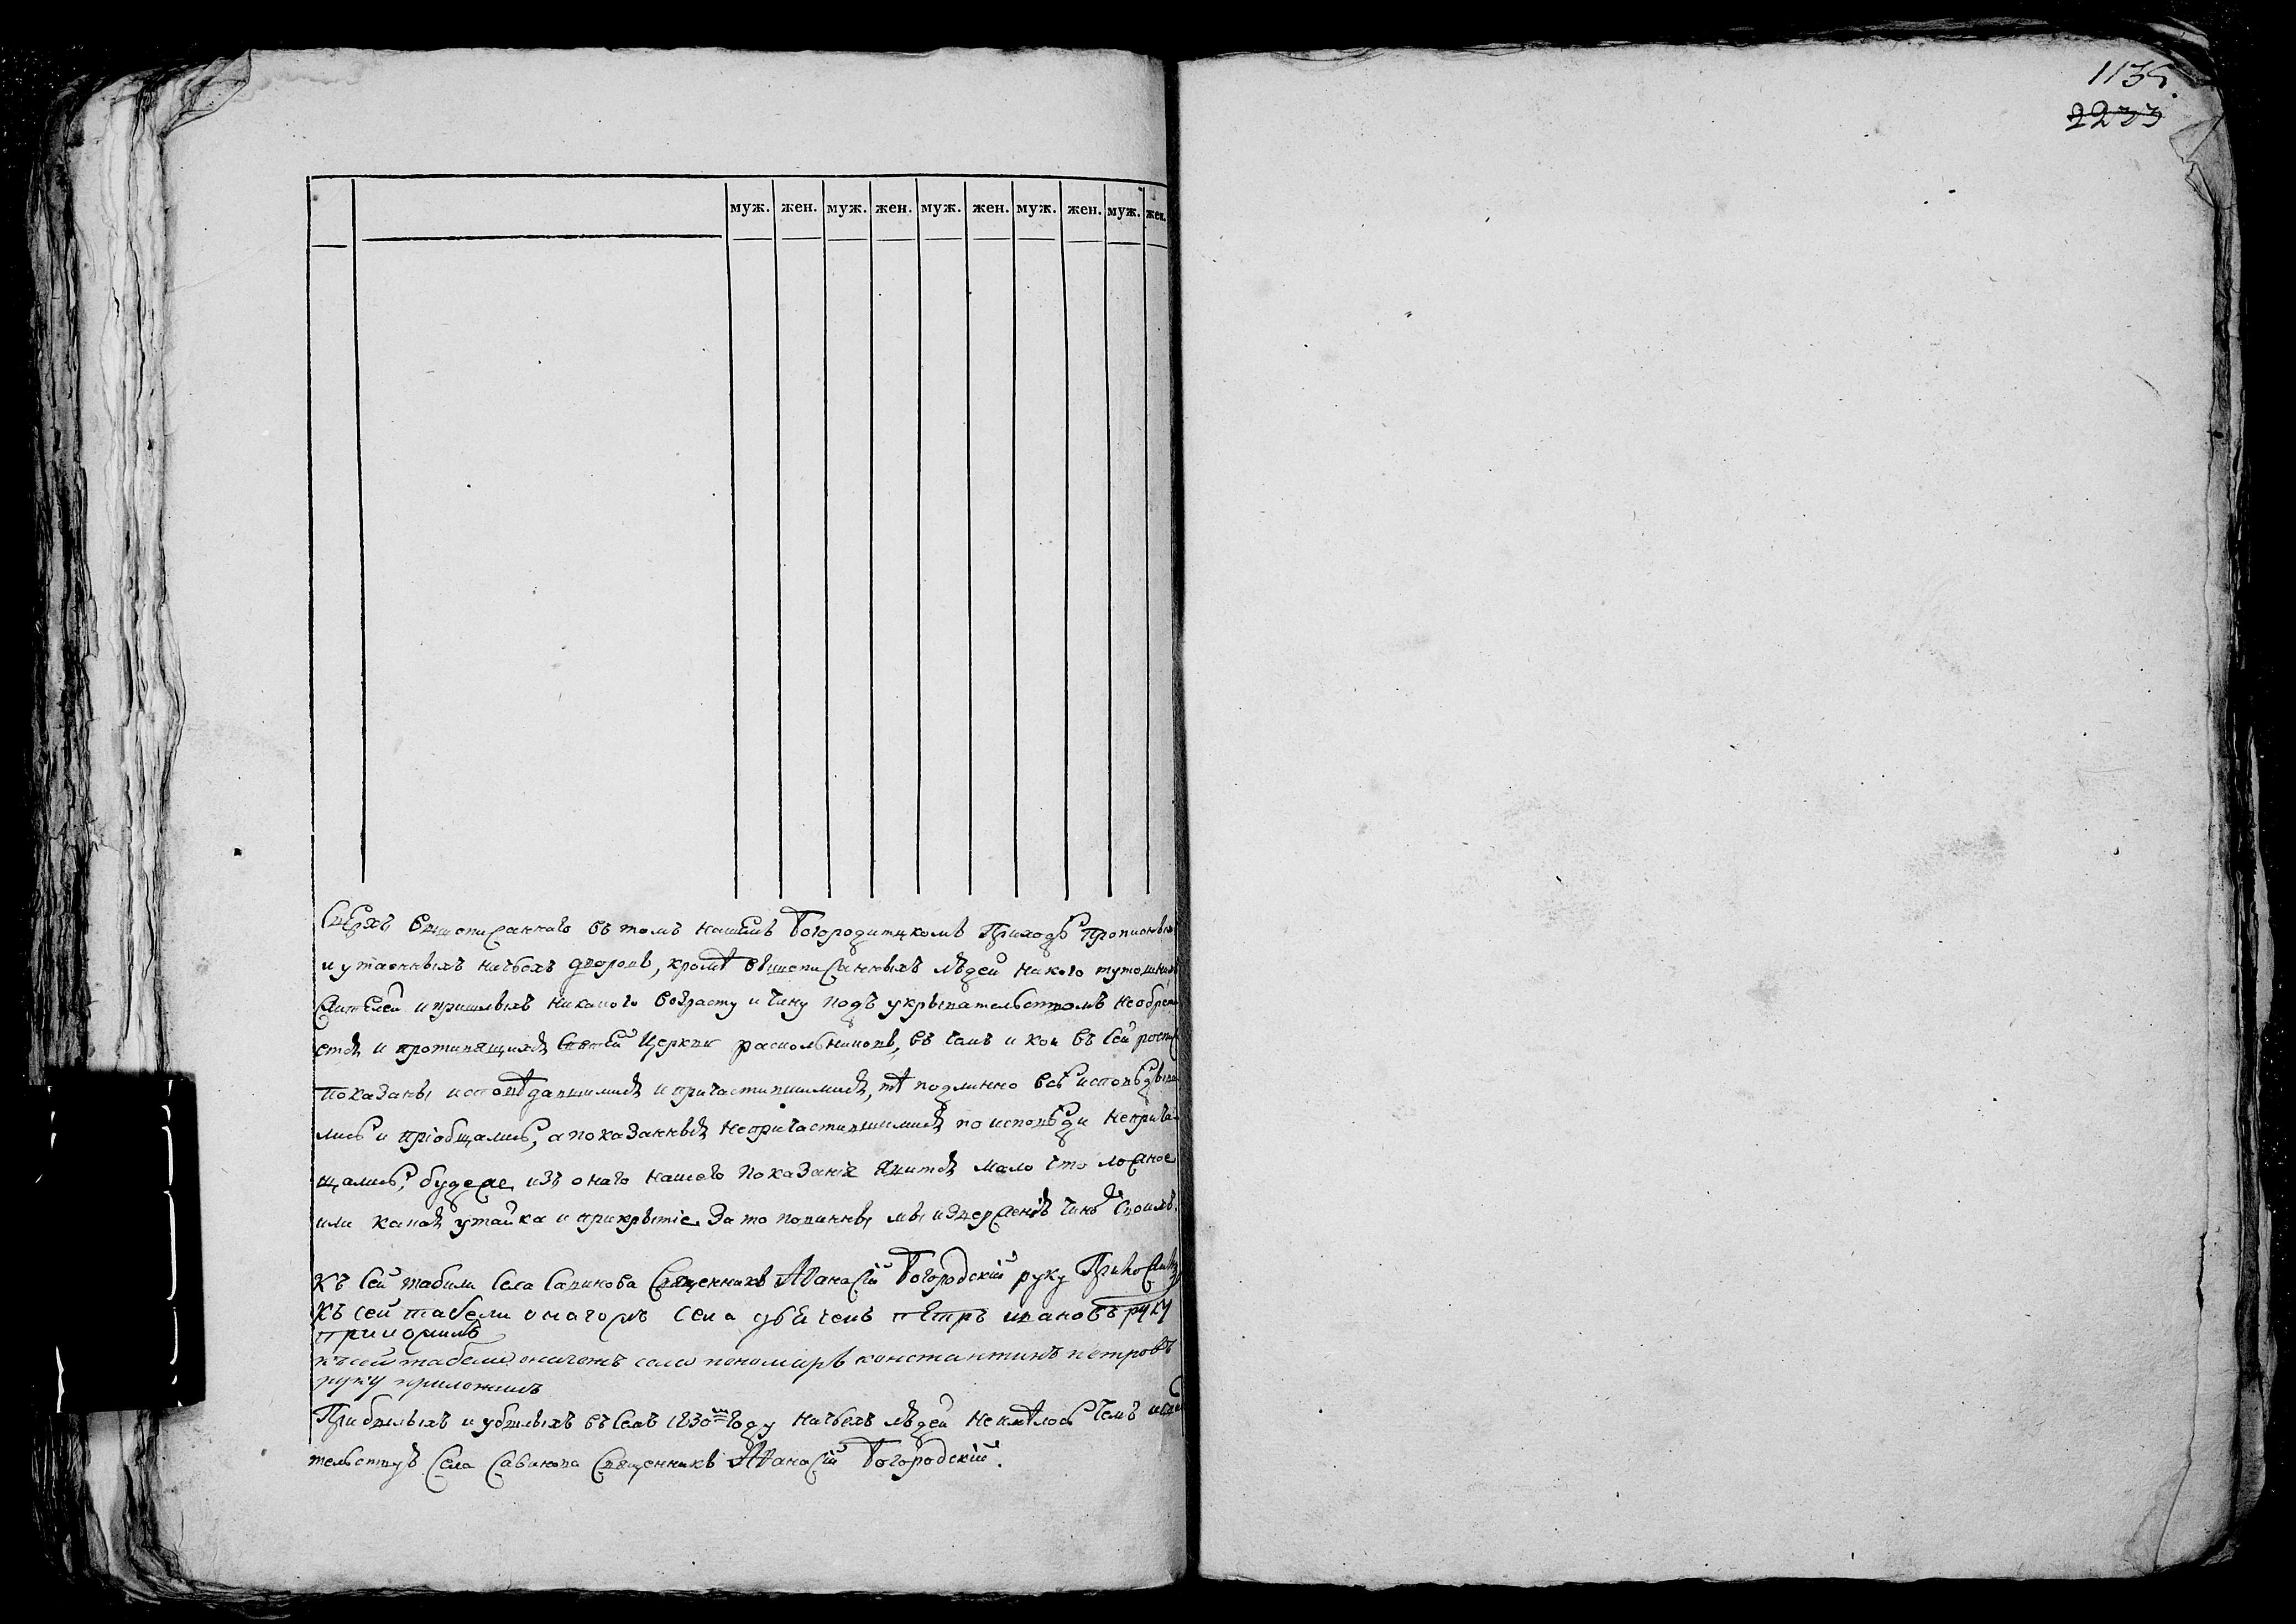 1135.
2233
муж. жен. муж. жен. муж. жен. муж. жен. муж. жен.
Сверхъ вышеписаннаго въ томъ нашемъ Богородитцкомъ Приходѣ Прописныхъ
и утаенныхъ ничьехъ дворовъ, кромѣ вышеписанныхъ людей никого тутошнихъ
жителей и пришлыхъ никакого возрасту и чину подъ укрывательствомъ необрета
ется и противящихся Святей Церкви раскольниковъ, въ чемъ и кои въ Сей росписи
показаны исповѣдавшимися и причастившимися, тѣ подлинно всѣ исповѣдыва
лись и пріобщались, а показанныя непричастившимися по исповѣди неприча
щались, будеже изъ онаго нашего показанія явится мало что ложное
или какая утайка и прикрытіе за то повинны мы изверженія чиновъ своихъ.
Къ Сей табели Села Савинова Священникъ Аѳанасій Богородскій руку Приложилъ
Къ сей табели онагожъ села дьячекъ петръ ивановъ руку
приложилъ
къ сей табели онагожъ села пономарь константинъ петровъ
руку приложилъ
Прибылыхъ и убылыхъ въ семъ 1830мъ году ничьехъ людей неимѣлось въ чемъ и свидѣ
тельствуетъ Села Савинова Священникъ Аѳанасій Богородскій.